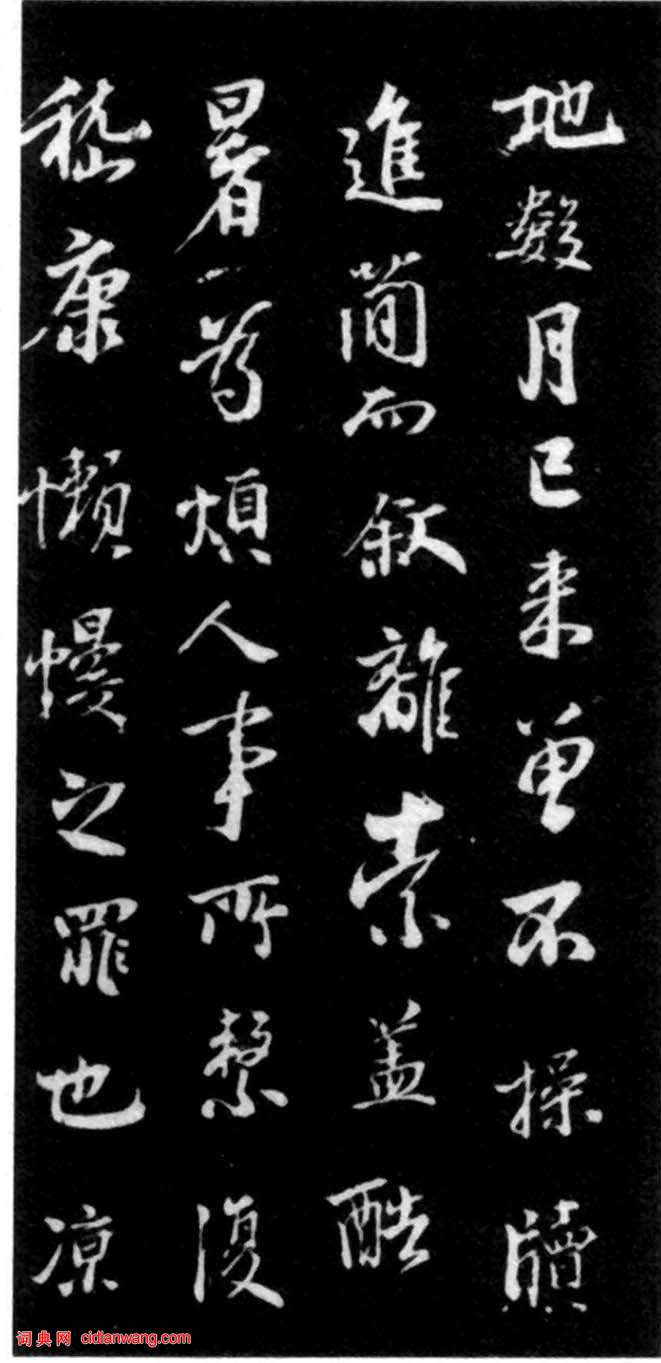 地數月已来曾不操牘
進簡而叙離索蓋酷
暑為煩人事所繫復
嵇康懶慢之罪也凉
词典网 cidianwang.com